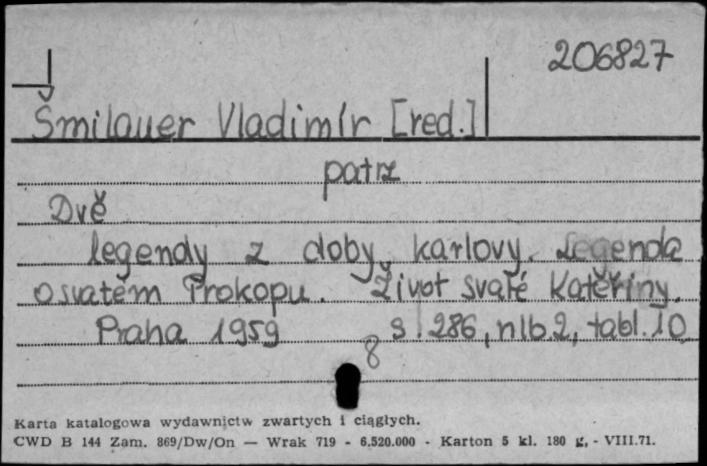 206827
Šmilauer Vladimír [red.]
patrz
Dvě
legendy z doby karlovy. Legenda
o svatém Prokopu. Život svaté Kateřiny.
Praha 1959 s. 286, nlb. 2, tabl. 10
8
Karta katalogowa wydawnictw zwartych i ciągłych.
CWD B 144 Zam. 869/Dw/On — Wrak 719 - 6.520.000 - Karton 5 kl. 180 g, - VIII.71.